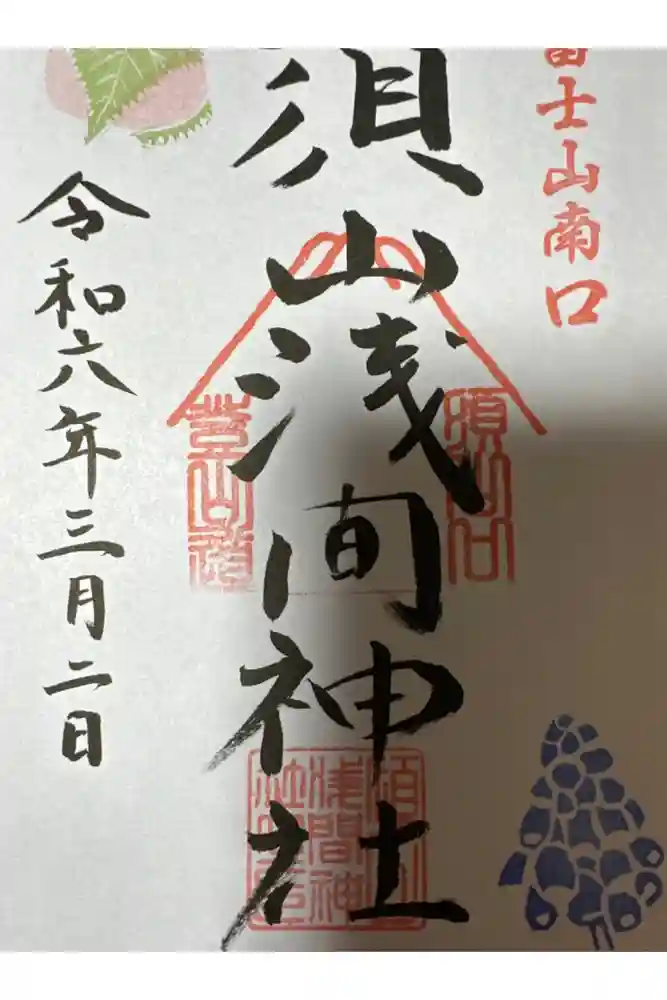 富士山南口
須山浅間神社
須山口
登山道
令和六年三月二日